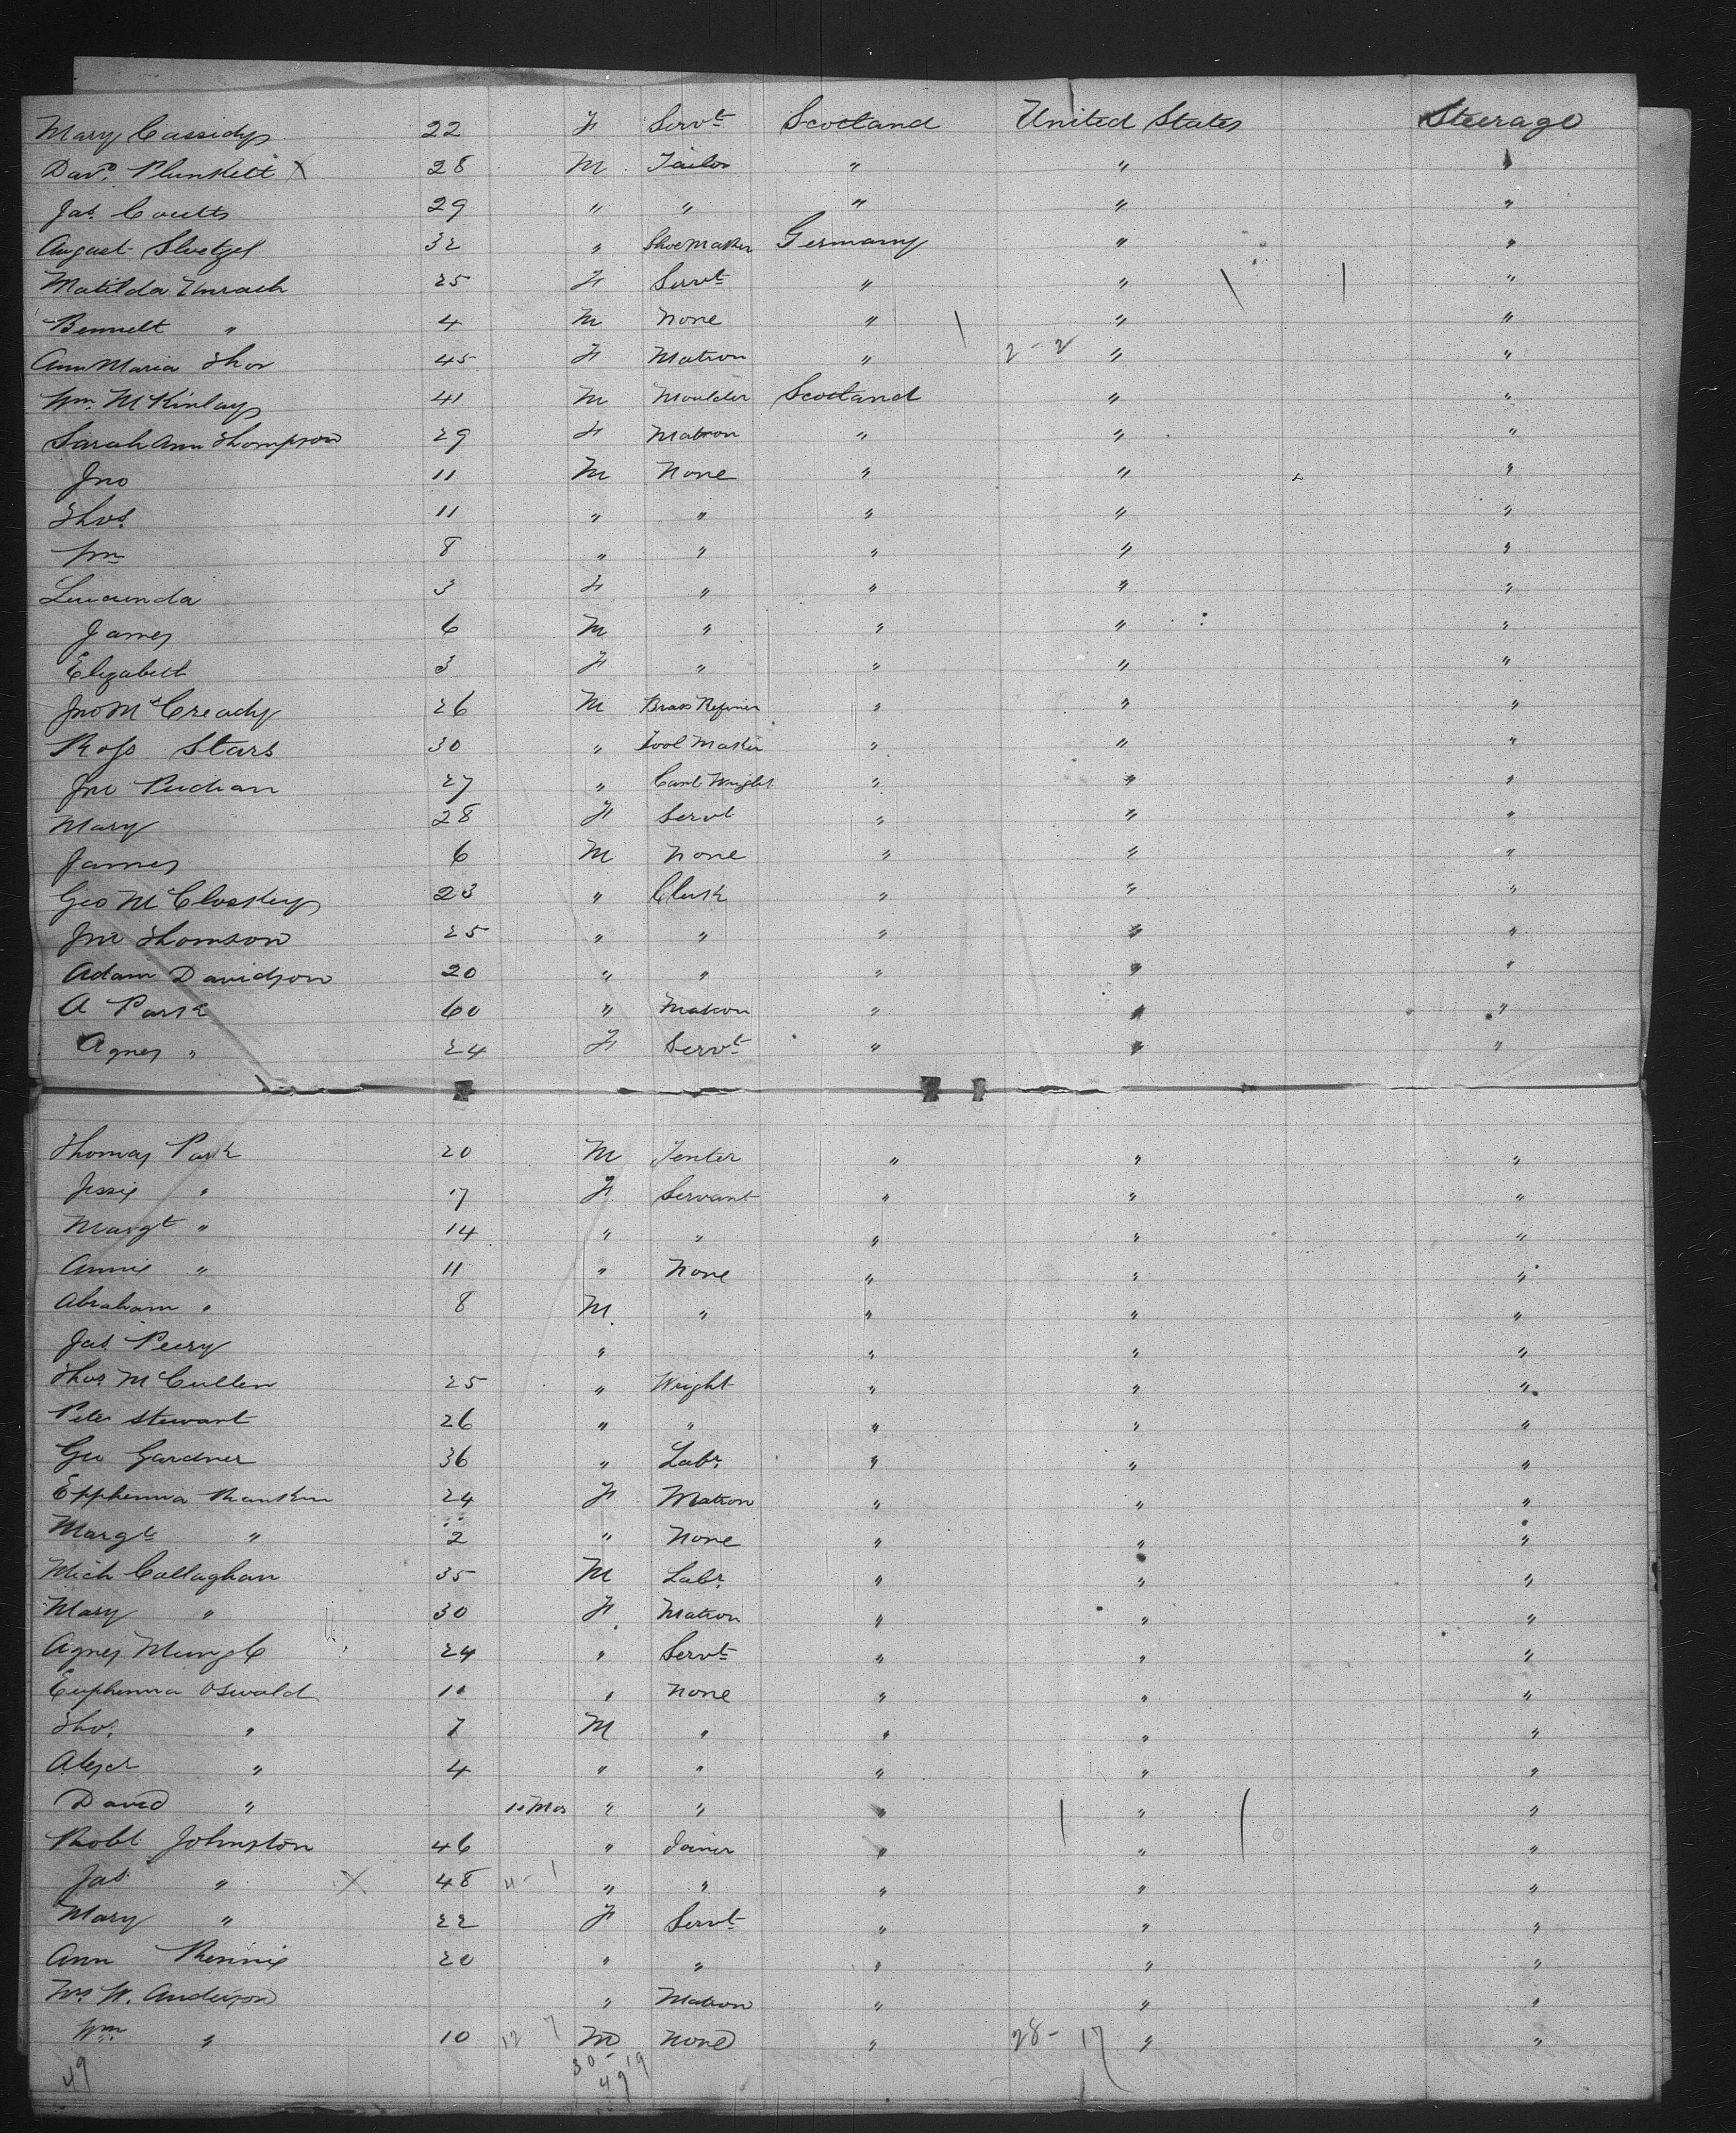 Mary Cassidy 22 F Servt Scotland United States Steerage
Davd. Plunkett X 28 M Tailor " " "
Jas. Coutts 29 " " " " "
August 32 " Shoe Maker Germany " "
Matilda 25 F Servt " " "
Bennett " 4 M None " " "
Ann Maria Thor 45 F Matron " 2-2 " "
Wm. McKinlay 41 M Moulder Scotland " "
Sarah Ann Thompson 29 F Matron " " "
Jno 11 M None " " "
Thos. 11 " " " " "
Wm 8 " " " " "
3 F " " " "
James 6 M " " " "
Elizabeth 3 F " " " "
Jno McCready 26 M Brass Refiner " " "
Ross Stars 30 " Tool Maker " " "
Jno 27 " Cart Wright " " "
Mary 28 F Servt " " "
James 6 M None " " "
Geo McCloskey 23 " Clerk " " "
Jno Thomson 25 " " " " "
Adam Davidson 20 " " " " "
A Park 60 " " " "
Agnes " 24 F Servt " " "
Thomas Park 20 M Tenter " " "
Jessie " 17 F Servant " " "
Margt " 14 " " " " "
Annie " 11 " None " " "
Abraham " 8 M. " " " "
Jas. Peery " " " "
Thos McCullen 25 " Wright " " "
Peter Stewart 26 " " " " "
Geo Gardner 36 " Labr. " " "
Epphemia Rankin 24 F Matron " " "
Margt " 2 " None " " "
Mich Callaghan 35 M Labr. " " "
Mary " 30 F Matron " " "
Agnes 24 " Servt " " "
Euphemia Oswald 10 " None " " "
Thos. " 7 M " " " "
Alexr " 4 " " " " "
David " 10 Mos " " " " "
Robt Johnston 46 " Joiner " " "
Jas. " X 48 4-1 " " " " "
Mary " 22 F Servt " " "
Ann Rennie 20 " " " " "
Mrs W. Anderson " Matron " " "
Wm " 10 12 7 M None " 28-17 " "
49 30-19
49